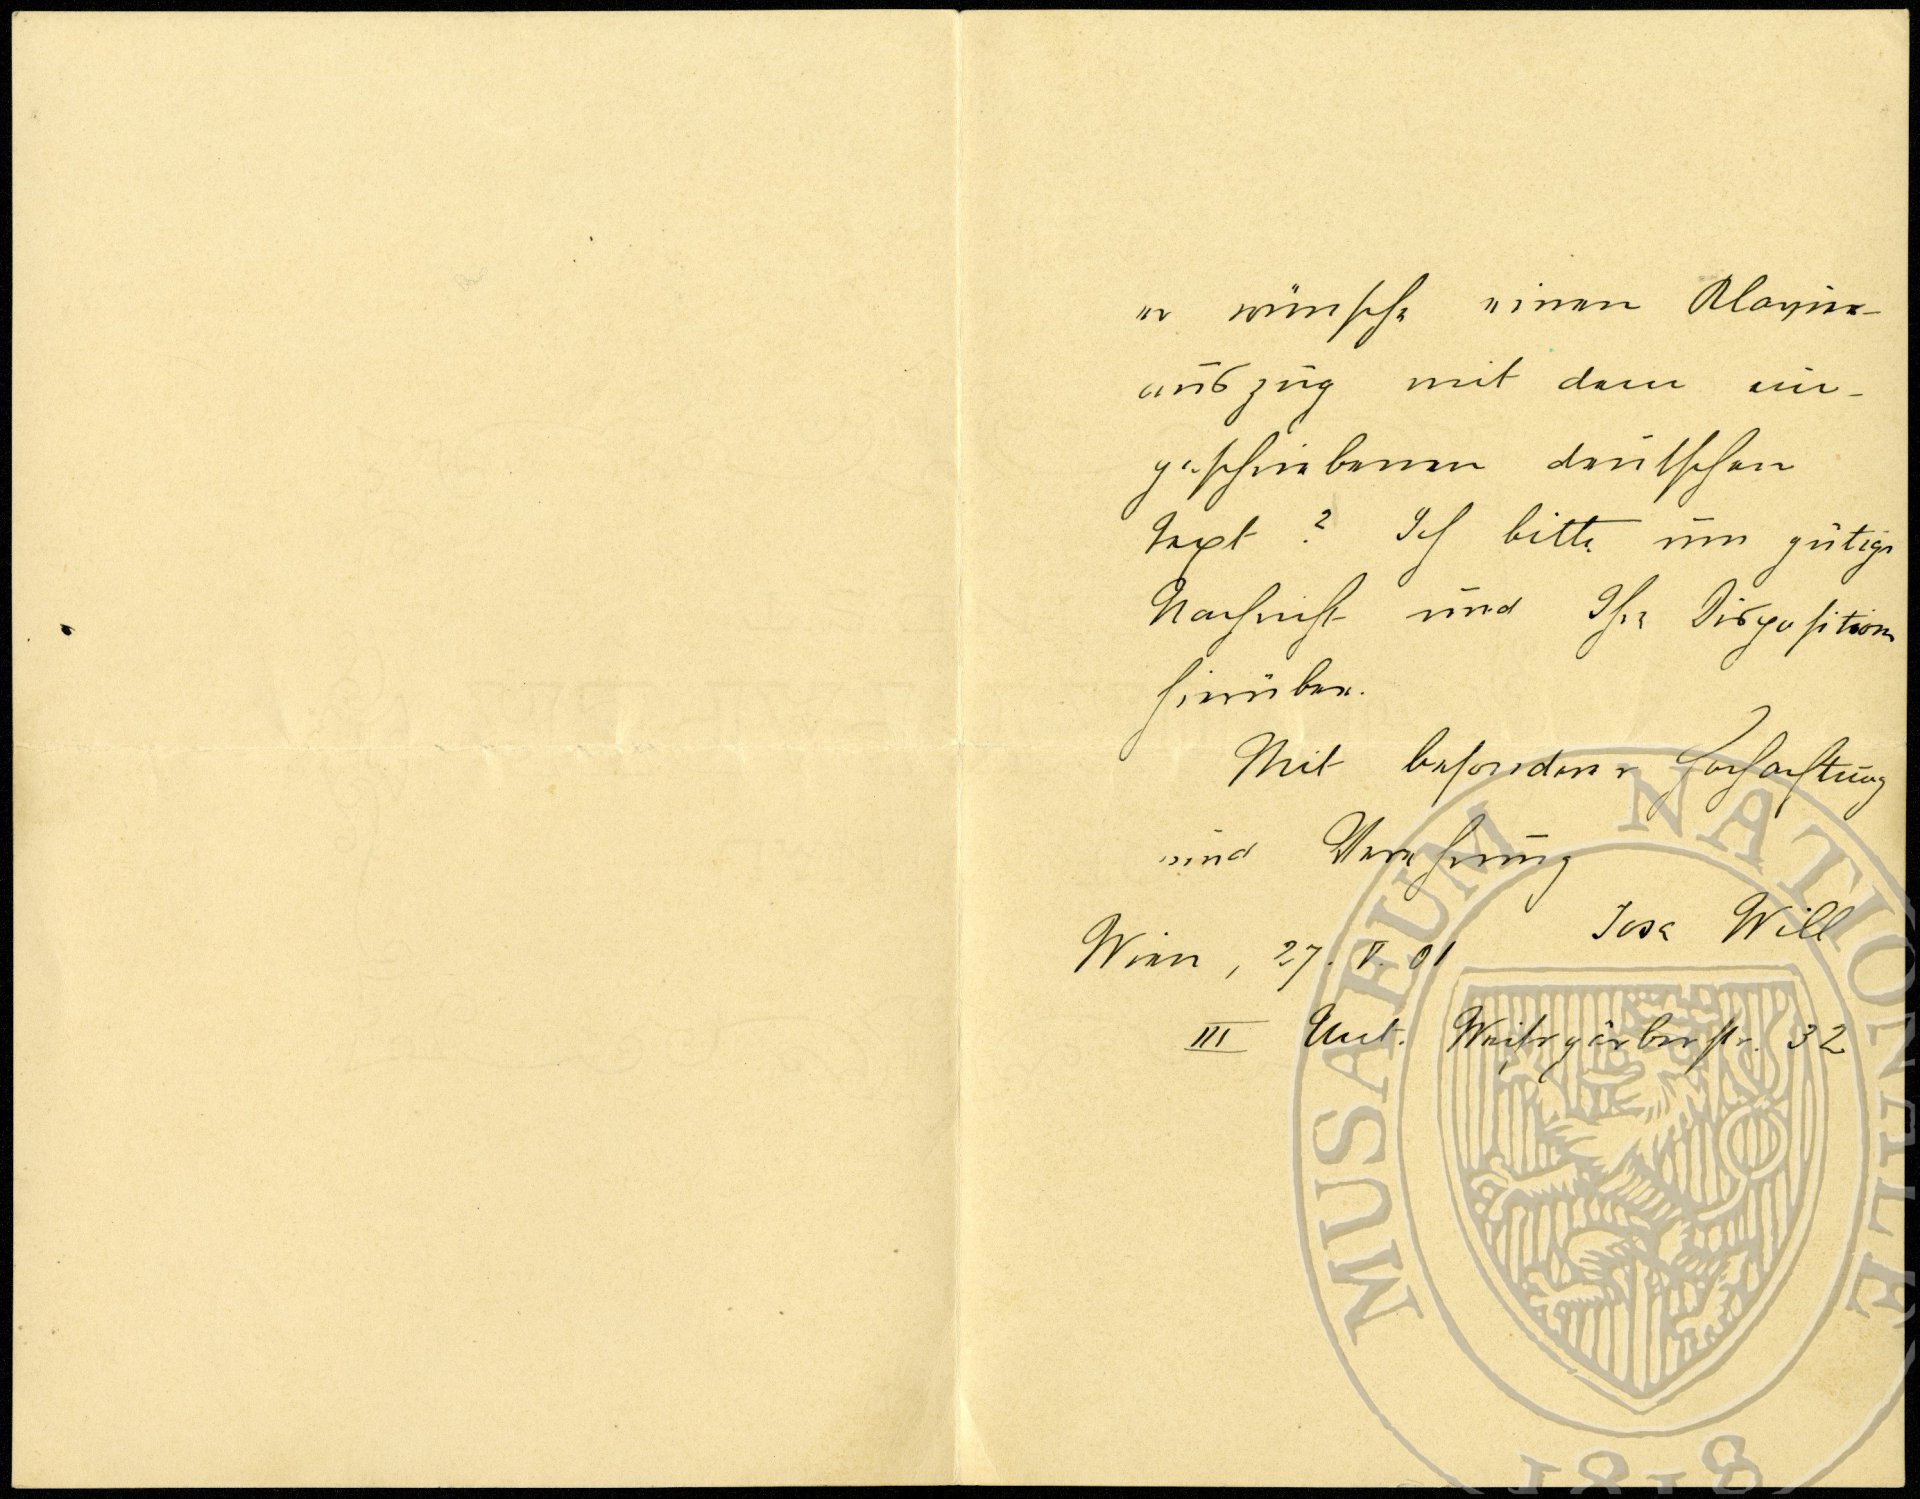 er wünsche einen Klavier-
auszug mit dem ein-
geschriebenen deutschen
Text? Ich bitte um gütige
Nachricht und Ihre Disposition
hierüber.
Mit besonderer Hochachtung
und Verehrung
Josa Will
Wien, 27. V. 01
III Unt. Weißgärberstr. 32
MUSAEUM NATIONALE
1818